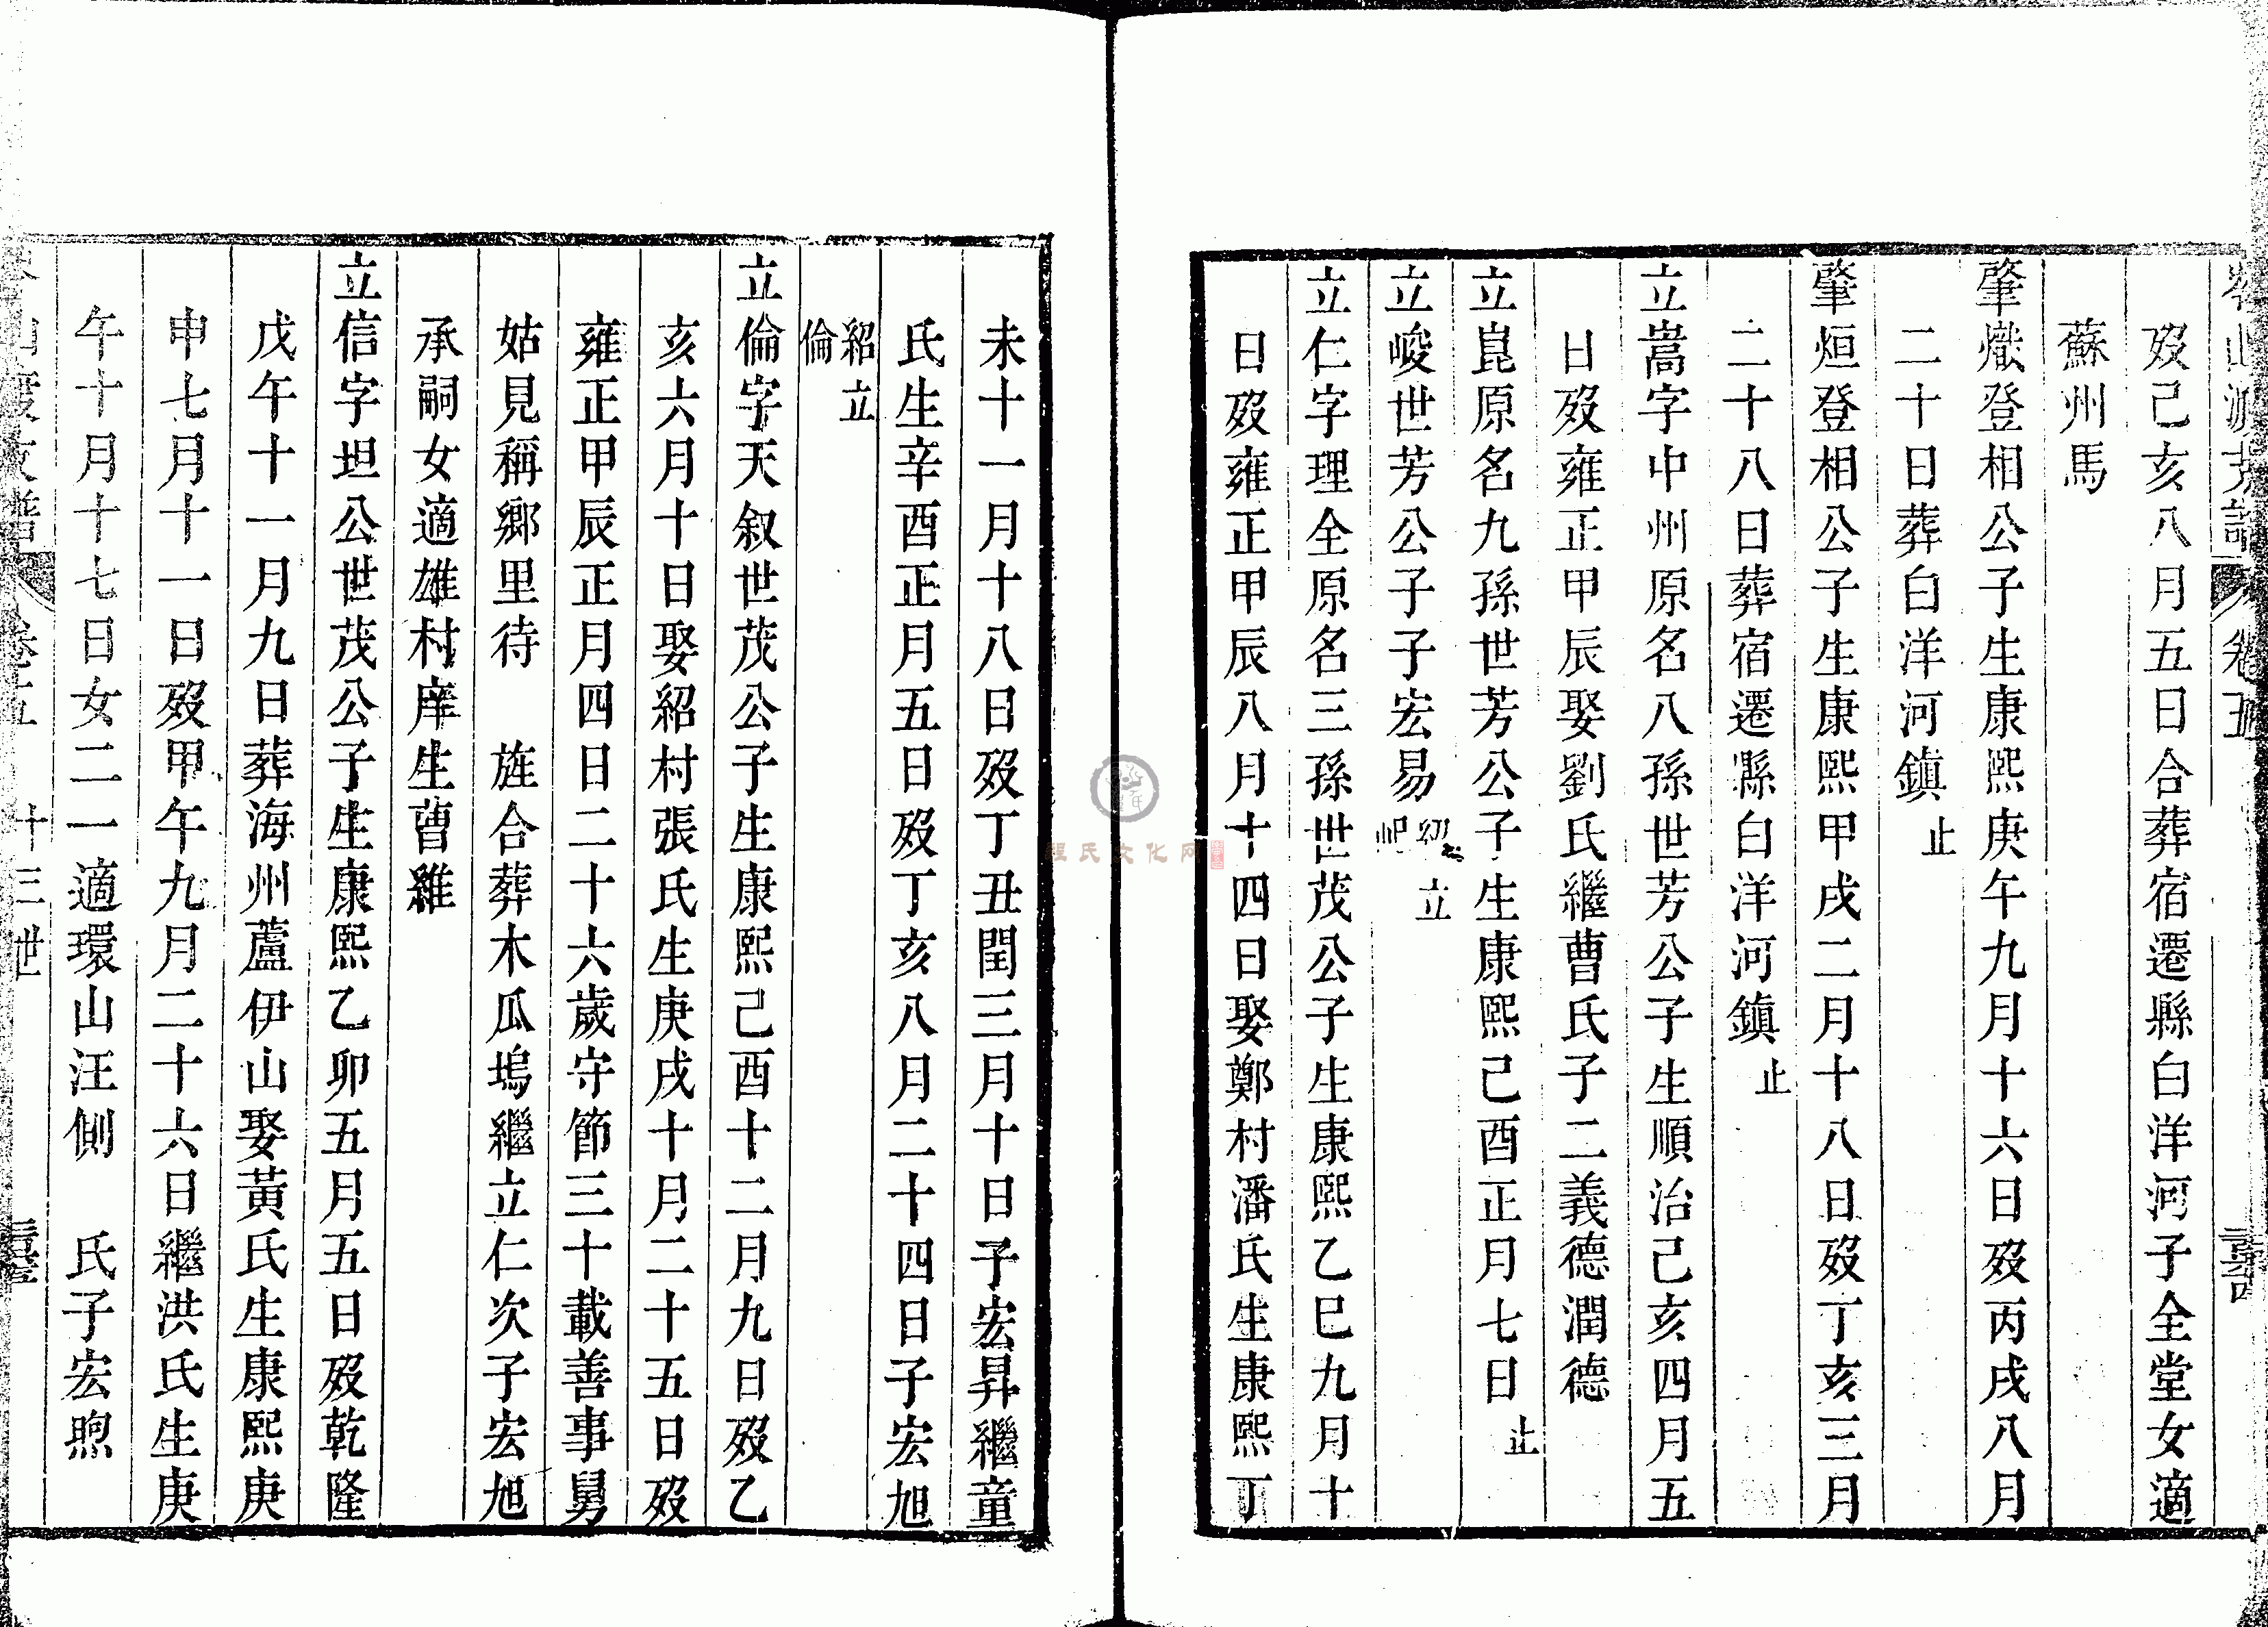 歿己亥八月五日合葬宿遷縣白洋河子全堂女適
蘇州馬
肇熾登相公子生康熙庚午九月十六日歿丙戌八月
二十日葬白洋河鎮止
肇烜登相公子生康熙甲戌二月十八日歿丁亥三月
二十八日葬宿遷縣白洋河鎮止
立嵩字中州原名八孫世芳公子生順治己亥四月五
日歿雍正甲辰娶劉氏繼曹氏子二義德潤德
立崑原名九孫世芳公子生康熙己酉正月七日止
立峻世芳公子子宏易
立仁字理全原名三孫世茂公子生康熙乙巳九月十
日歿雍正甲辰八月十四日娶鄭村潘氏生康熙丁
未十一月十八日歿丁丑閏三月十日子宏昇繼童
氏生辛酉正月五日歿丁亥八月二十四日子宏旭
紹立
倫
立倫字天叙世茂公子生康熙己酉十二月九日歿乙
亥六月十日娶紹村張氏生庚戌十月二十五日歿
雍正甲辰正月四日二十六歲守節三十載善事舅
姑見稱鄉里待 旌合葬木瓜塢繼立仁次子宏旭
承嗣女適雄村庠生曹維
立信字坦公世茂公子生康熙乙卯五月五日歿乾隆
戊午十一月九日葬海州蘆伊山娶黃氏生康熙庚
申七月十一日歿甲午九月二十六日繼洪氏生庚
午十月十七日女二一適環山汪側 氏子宏煦
卷五 十三世
程氏文化网